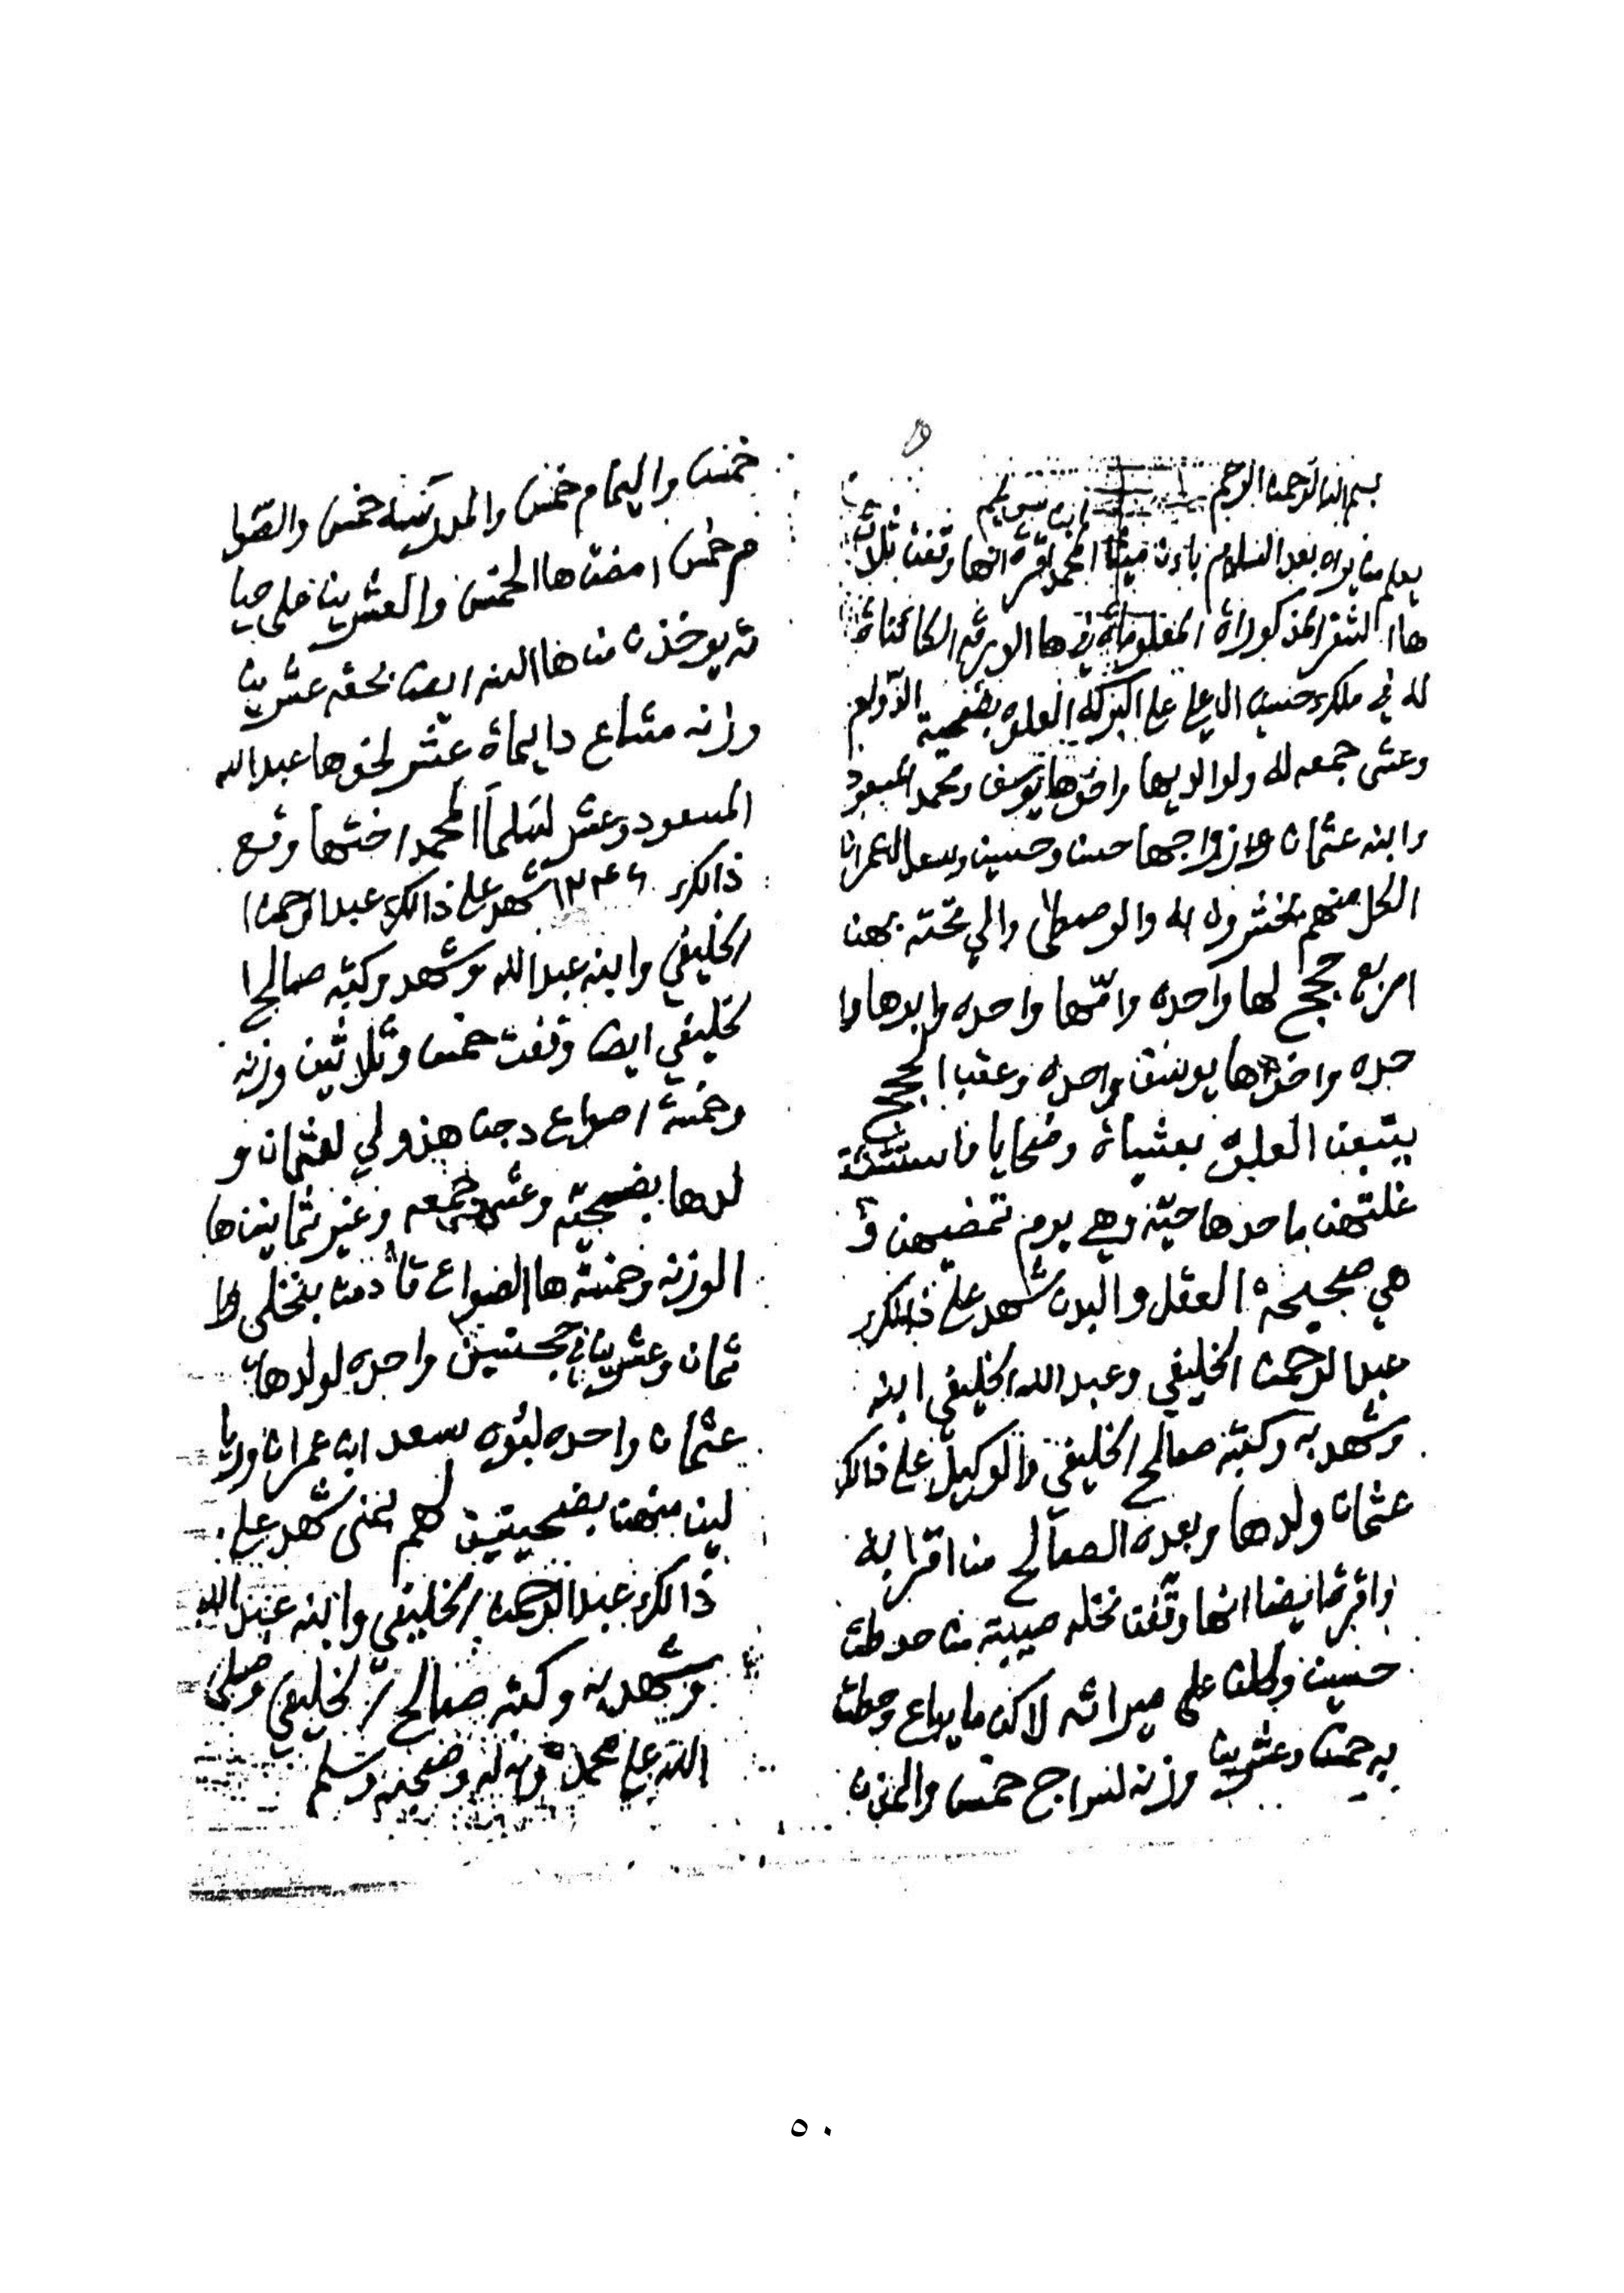 بسم الله الرحمن الرحيم
يعلم من يراه بعد السلام بان المحمد مقره انها وقفت ثلاث
ها الشقر المذكوراة المعلوماة في ها الورقه الكائناة
له في ملكه حسين العلي على البركه العلوه بضحية الدوام
وعشى جمعه له ولوالديها واخوها يوسف ومحمد المسعود
وابنه عثمان وازواجها حسن وحسين وسعد العمران
الكل منهم والوصطى والي تحته بهن
اربع حجج لها واحده وامها واحده وابوها وا
حده واخوها يوسف واحده وعقب الحجج
يتبعن العلوه بعشياة وضحايا
غلتهن ماحدها حيه وهي يوم تمضيهن و
هي صحيحة العقل والبدن شهد على ذالك
عبد الرحمن الخليفي وعبد الله الخليفي ابنه
وشهد به وكتبه صالح الخليفي والوكيل على ذالك
عثمان ولدها وبعده الصالح من اقرابه
واقرة ايضا انها وقفت نخله صيبته من حوطة
حسين وكلن على ميراثه لاكن ما يباع وحطت
به خمس وعشرين وزنه لسراج خمس والمؤذن
خمس واليمام خمس والمدرسه خمس والصوا
م خمس امضت ها الخمس والعشرين على حيا
ته يوخذن من ها السنه ايضا بحقه عشرين
وزنه مشاع دايماة عشر لخوها عبد الله
المسعود وعشر لسلما المحمد اختها وقع
ذالك ١٣٤٦ شهد على ذالك عبد الرحمن ا
لخليفي وابنه عبد الله وشهد وكتبه صالح ا
لخليفي ايضا وقفت خمس وثلاثين وزنه
وخمسة اصواع دجن هذولي لعثمان و
لدها بضحيه وعشى جمعه وغير ثمانين ها
الوزنه وخمسة ها الصواع بنخلي
ثمان وعشرين في حجتين واحده لولدها
عثمان واحده لبوه سعد ابن عمران
لين منهن بضحيتين لهم شهد على
ذالك عبد الرحمن الخليفي وابنه عبد الله
وشهد به وكتبه صالح الخليفي وصلى
الله على محمد واله وصحبه وسلم
٥٠